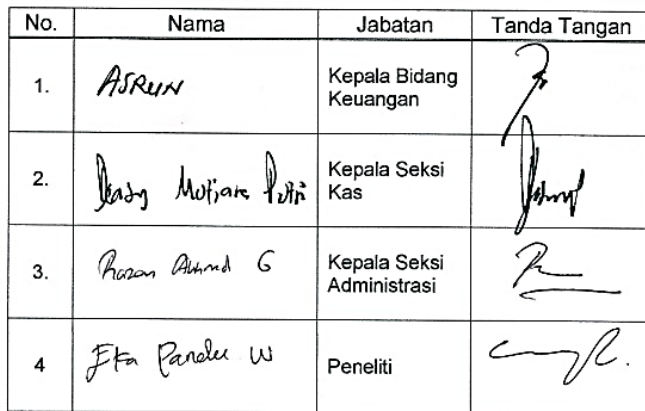 No. Nama Jabatan Tanda Tangan
1. ASRUN Kepala Bidang
Keuangan
2. Deasy Mutiara Putri Kepala Seksi
Kas
3. Razan Ahmad G Kepala Seksi
Administrasi
4 Eka Pandu W Peneliti